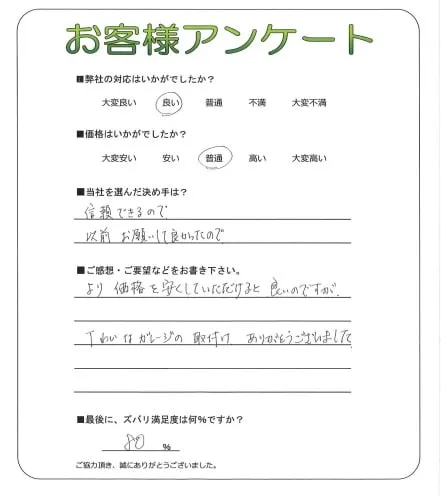 お客様アンケート
■弊社の対応はいかがでしたか？
大変良い 良い 普通 不満 大変不満
■価格はいかがでしたか？
大変安い 安い 普通 高い 大変高い
■当社を選んだ決め手は？
信頼できるので
以前 お願いして良かったので
■ご感想・ご要望などをお書き下さい。
より 価格を安くしていただけると 良いのですが、
ていねいなガレージの 取付け ありがとうございました
■最後に、ズバリ満足度は何％ですか？
80 ％
ご協力頂き、誠にありがとうございました。